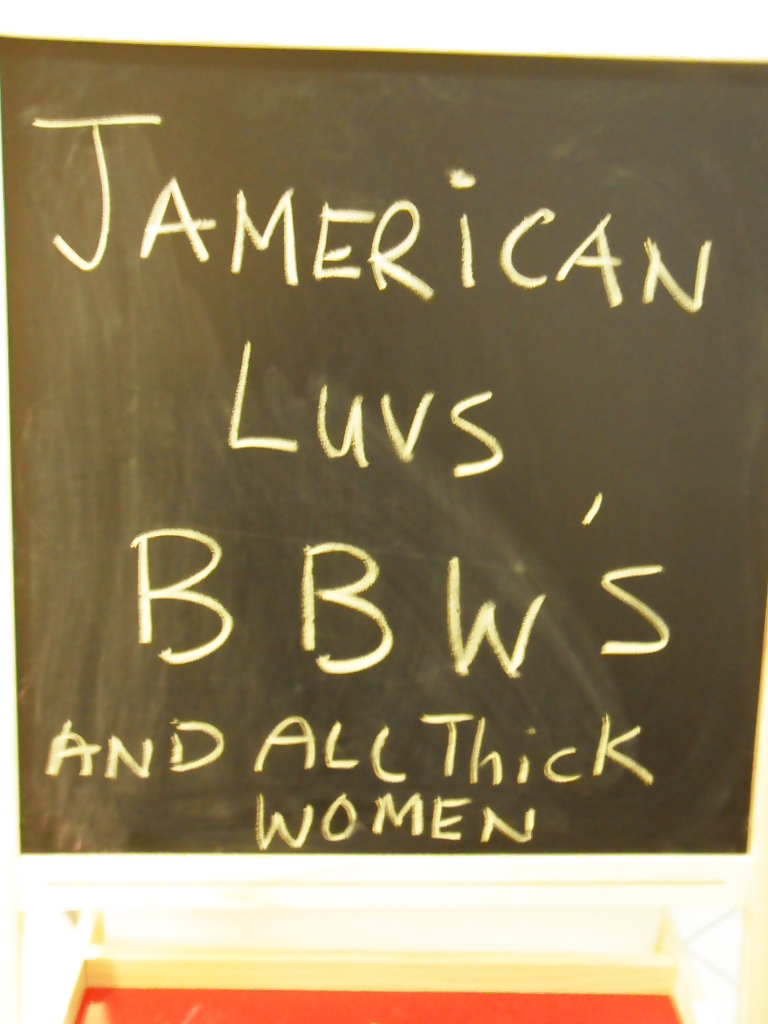 JAMERiCAN
LUVS
BBW'S
AND ALL Thick
WOMEN